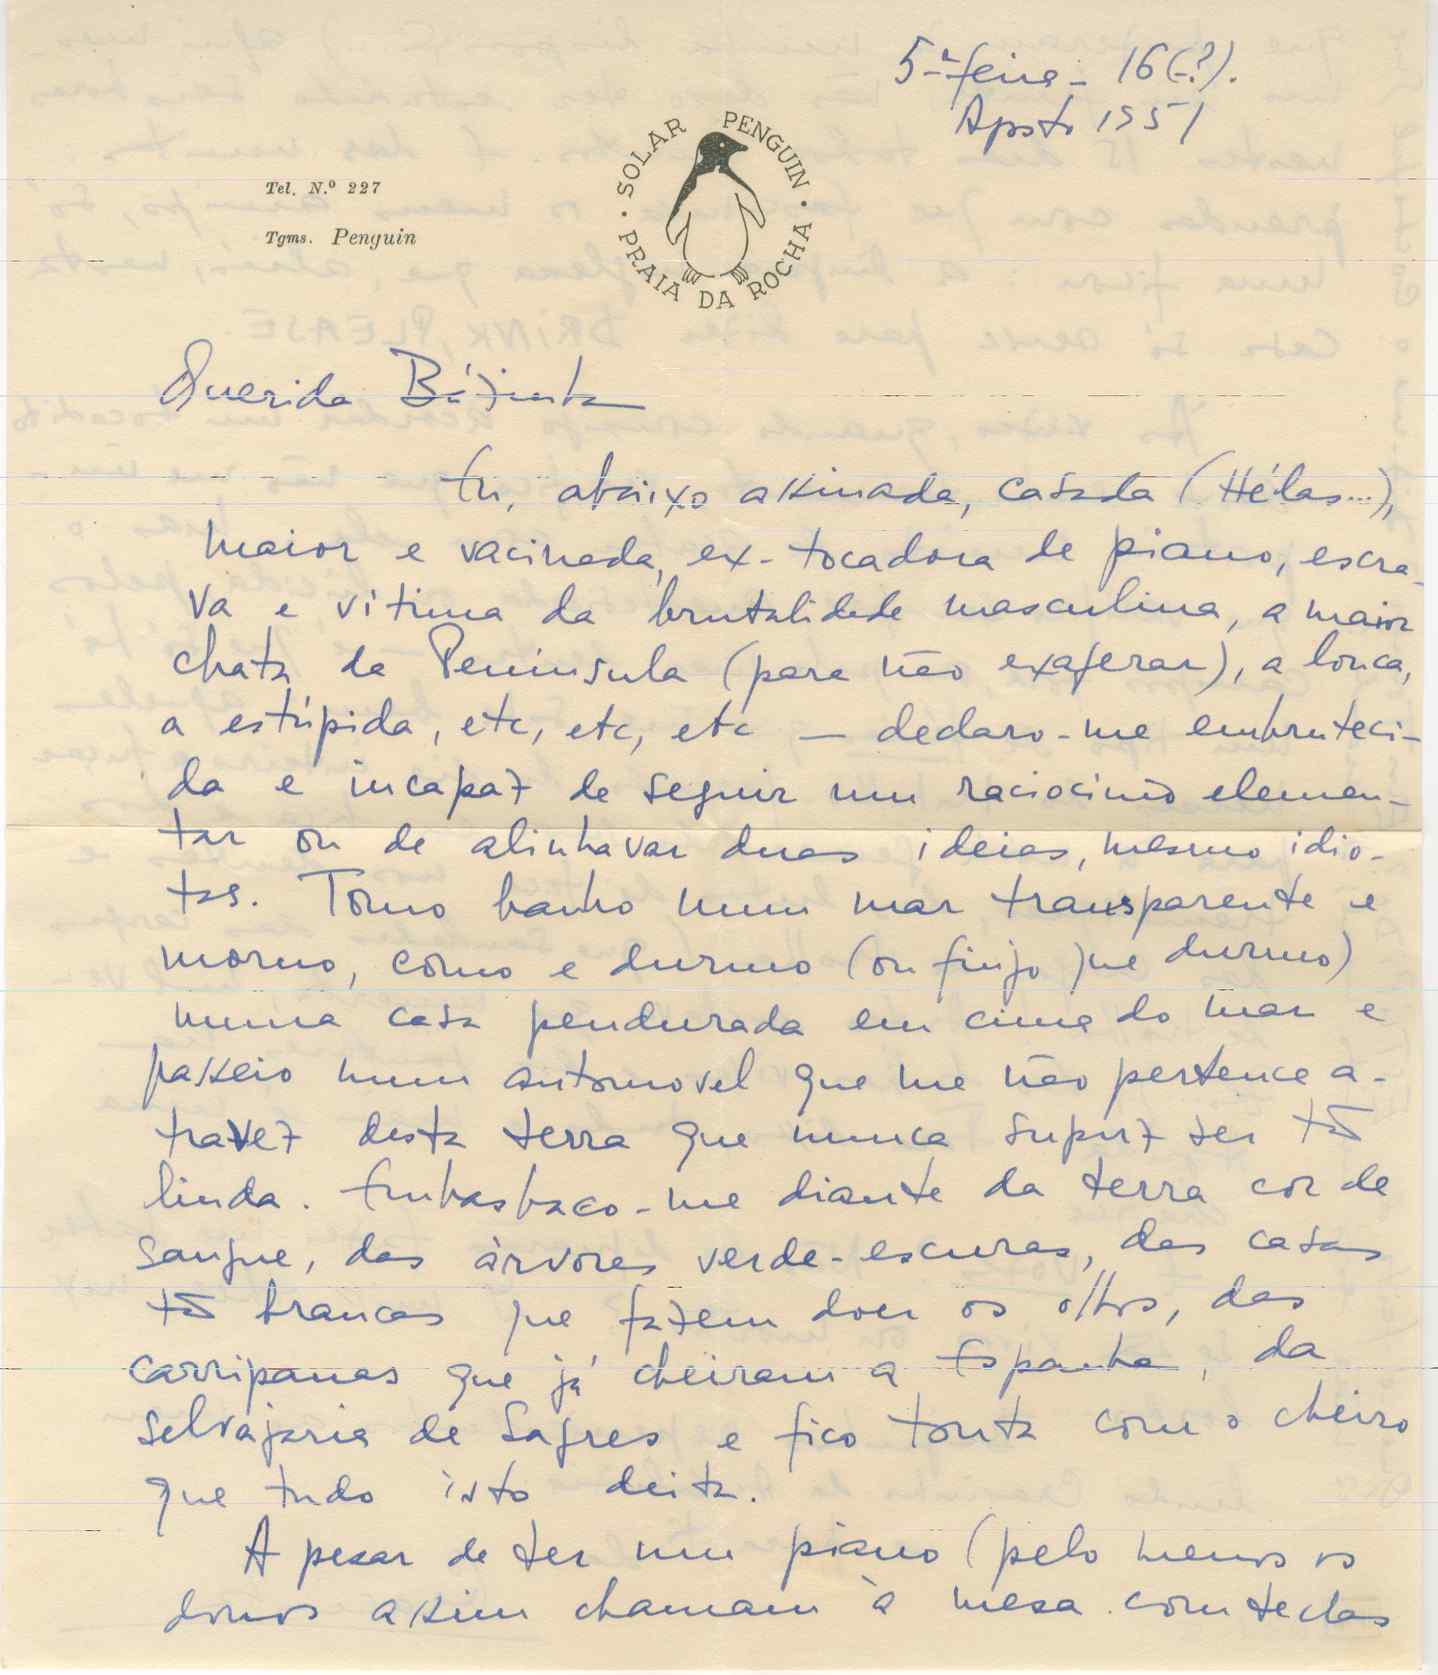 5ª-feira - 16(?).
Agosto 1951
SOLAR PENGUIN · PRAIA DA ROCHA ·
Tel. N.º 227
Tgms. Penguin
Querida
Eu, abaixo assinada, casada (Hélas...),
maior e vacinada, ex-tocadora de piano, escra-
va e vítima da brutalidade masculina, a maior
chata da Península (para não exagerar), a louca,
a estúpida, etc, etc, etc — declaro-me embruteci-
da e incapaz de seguir um raciocínio elemen-
tar ou de alinhavar duas ideias, mesmo idio-
tas. Tomo banho num mar transparente e
morno, como e durmo (ou finjo que durmo)
numa casa pendurada em cima do mar e
passeio num automovel que me não pertence a-
travez desta terra que nunca supuz ser tão
linda. Embasbaco-me diante da terra cor de
sangue, das árvores verde-escuras, das casas
tão brancas que fazem doer os olhos, das
carripanas que já cheiram a Espanha, da
selvajaria de Sagres e fico tonta com o cheiro
que tudo isto deita.
A pesar de ter um piano (pelo menos os
donos assim chamam à mesa com teclas